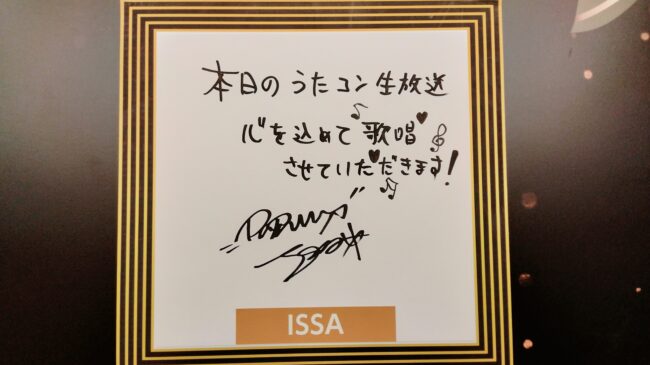 本日のうたコン生放送
心を込めて歌唱
させていただきます!
ISSA